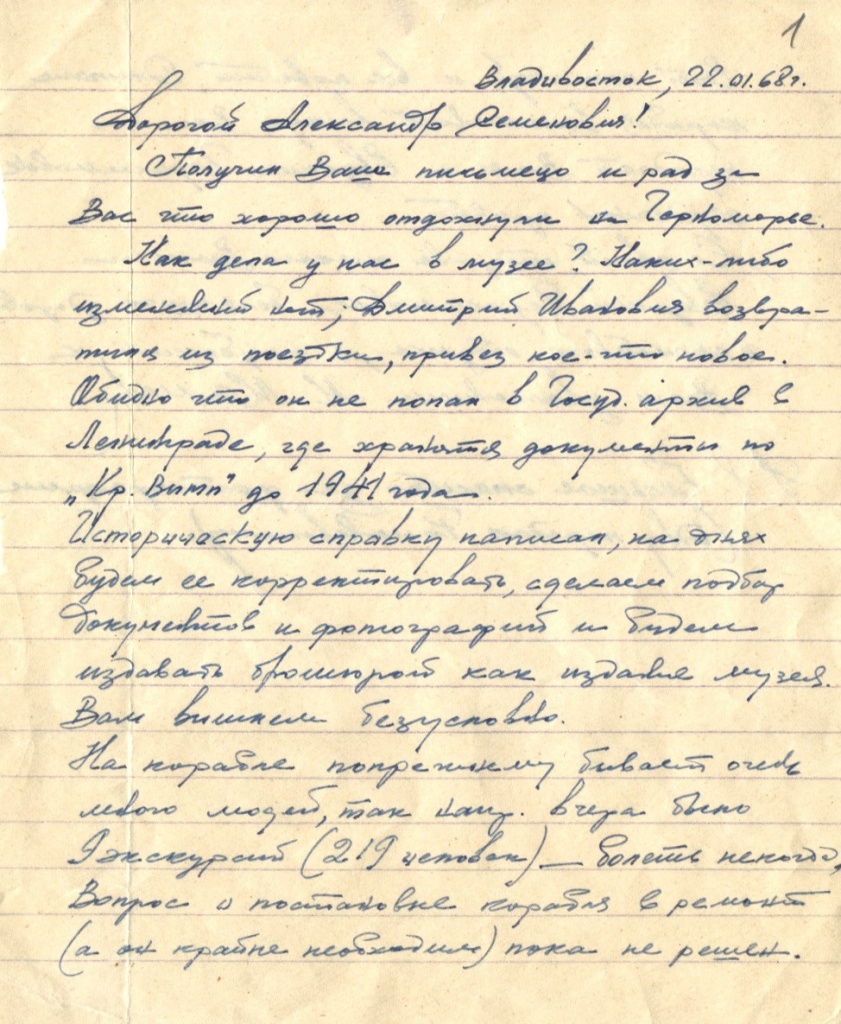 1
Владивосток, 22.01.68г.
Дорогой Александр Семенович!
Получил Ваше письмецо и рад за
Вас что хорошо отдохнули на Черноморье.
Как дела у нас в музее? Каких-либо
изменений нет; Дмитрий Иванович возвра-
тился из поездки, привез кое-что новое.
Обидно что он не попал в Госуд. архив в
Ленинграде, где хранятся документы по
„Кр. Вымп" до 1941 года.
Историческую справку написал, на днях
будем ее корректировать, сделаем подбор
документов и фотографий и будем
издавать брошюрой как издание музея.
Вам вышлем безусловно.
На корабле попрежнему бывает очень
много людей, так напр. вчера было
9 экскурсий (219 человек) — болеть некогда,
Вопрос о постановке корабля в ремонт
(а он крайне необходим) пока не решен.